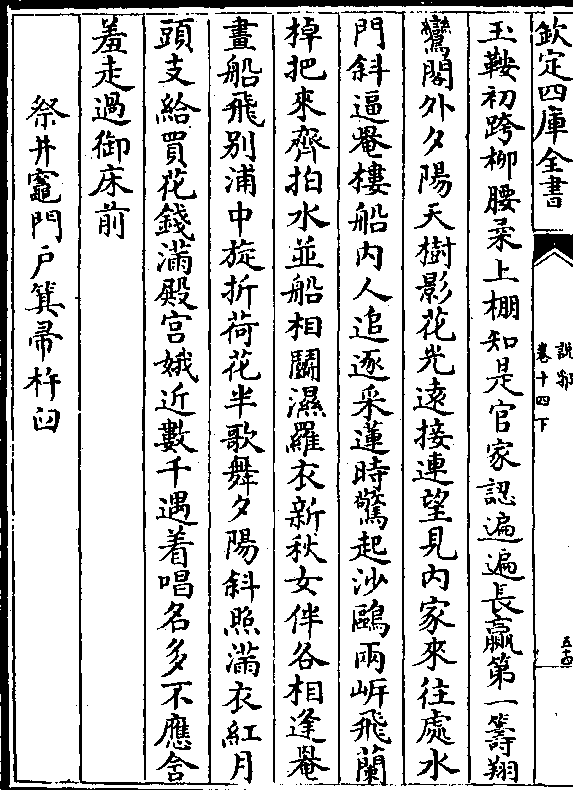 欽定四庫全書
說郛
卷十四下
五十四
玉鞍初跨柳腰柔上棚知是官家認遍遍長贏第一籌翔
鸞閣外夕陽天樹影花光遠接連望見内家來往處水
門斜逼罨樓船内人追逐采蓮時驚起沙鷗兩岸飛蘭
棹把來齊拍水並船相鬬濕羅衣新秋女伴各相逢罨
畫船飛别浦中旋折荷花半歌舞夕陽斜照滿衣紅月
頭支給買花錢滿殿宫娥近數千遇着唱名多不應含
羞走過御床前
祭井竈門戸箕帚杵臼